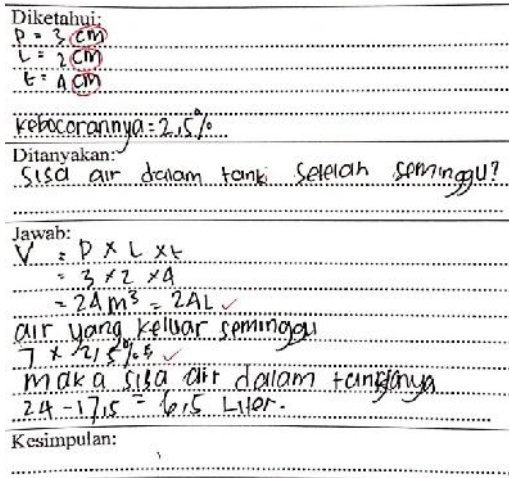 Diketahui:
P = 3 cm
L = 2 cm
t = 4 cm
kebocorannya = 2,5%
Ditanyakan:
sisa air dalam tanki setelah seminggu?
Jawab:
V = P x L x t
= 3 x 2 x 4
= 24 m³ = 24L
air yang keluar seminggu
7 x 2,5%
maka sisa air dalam
24 - 17,5 = 6,5 Liter.
Kesimpulan: